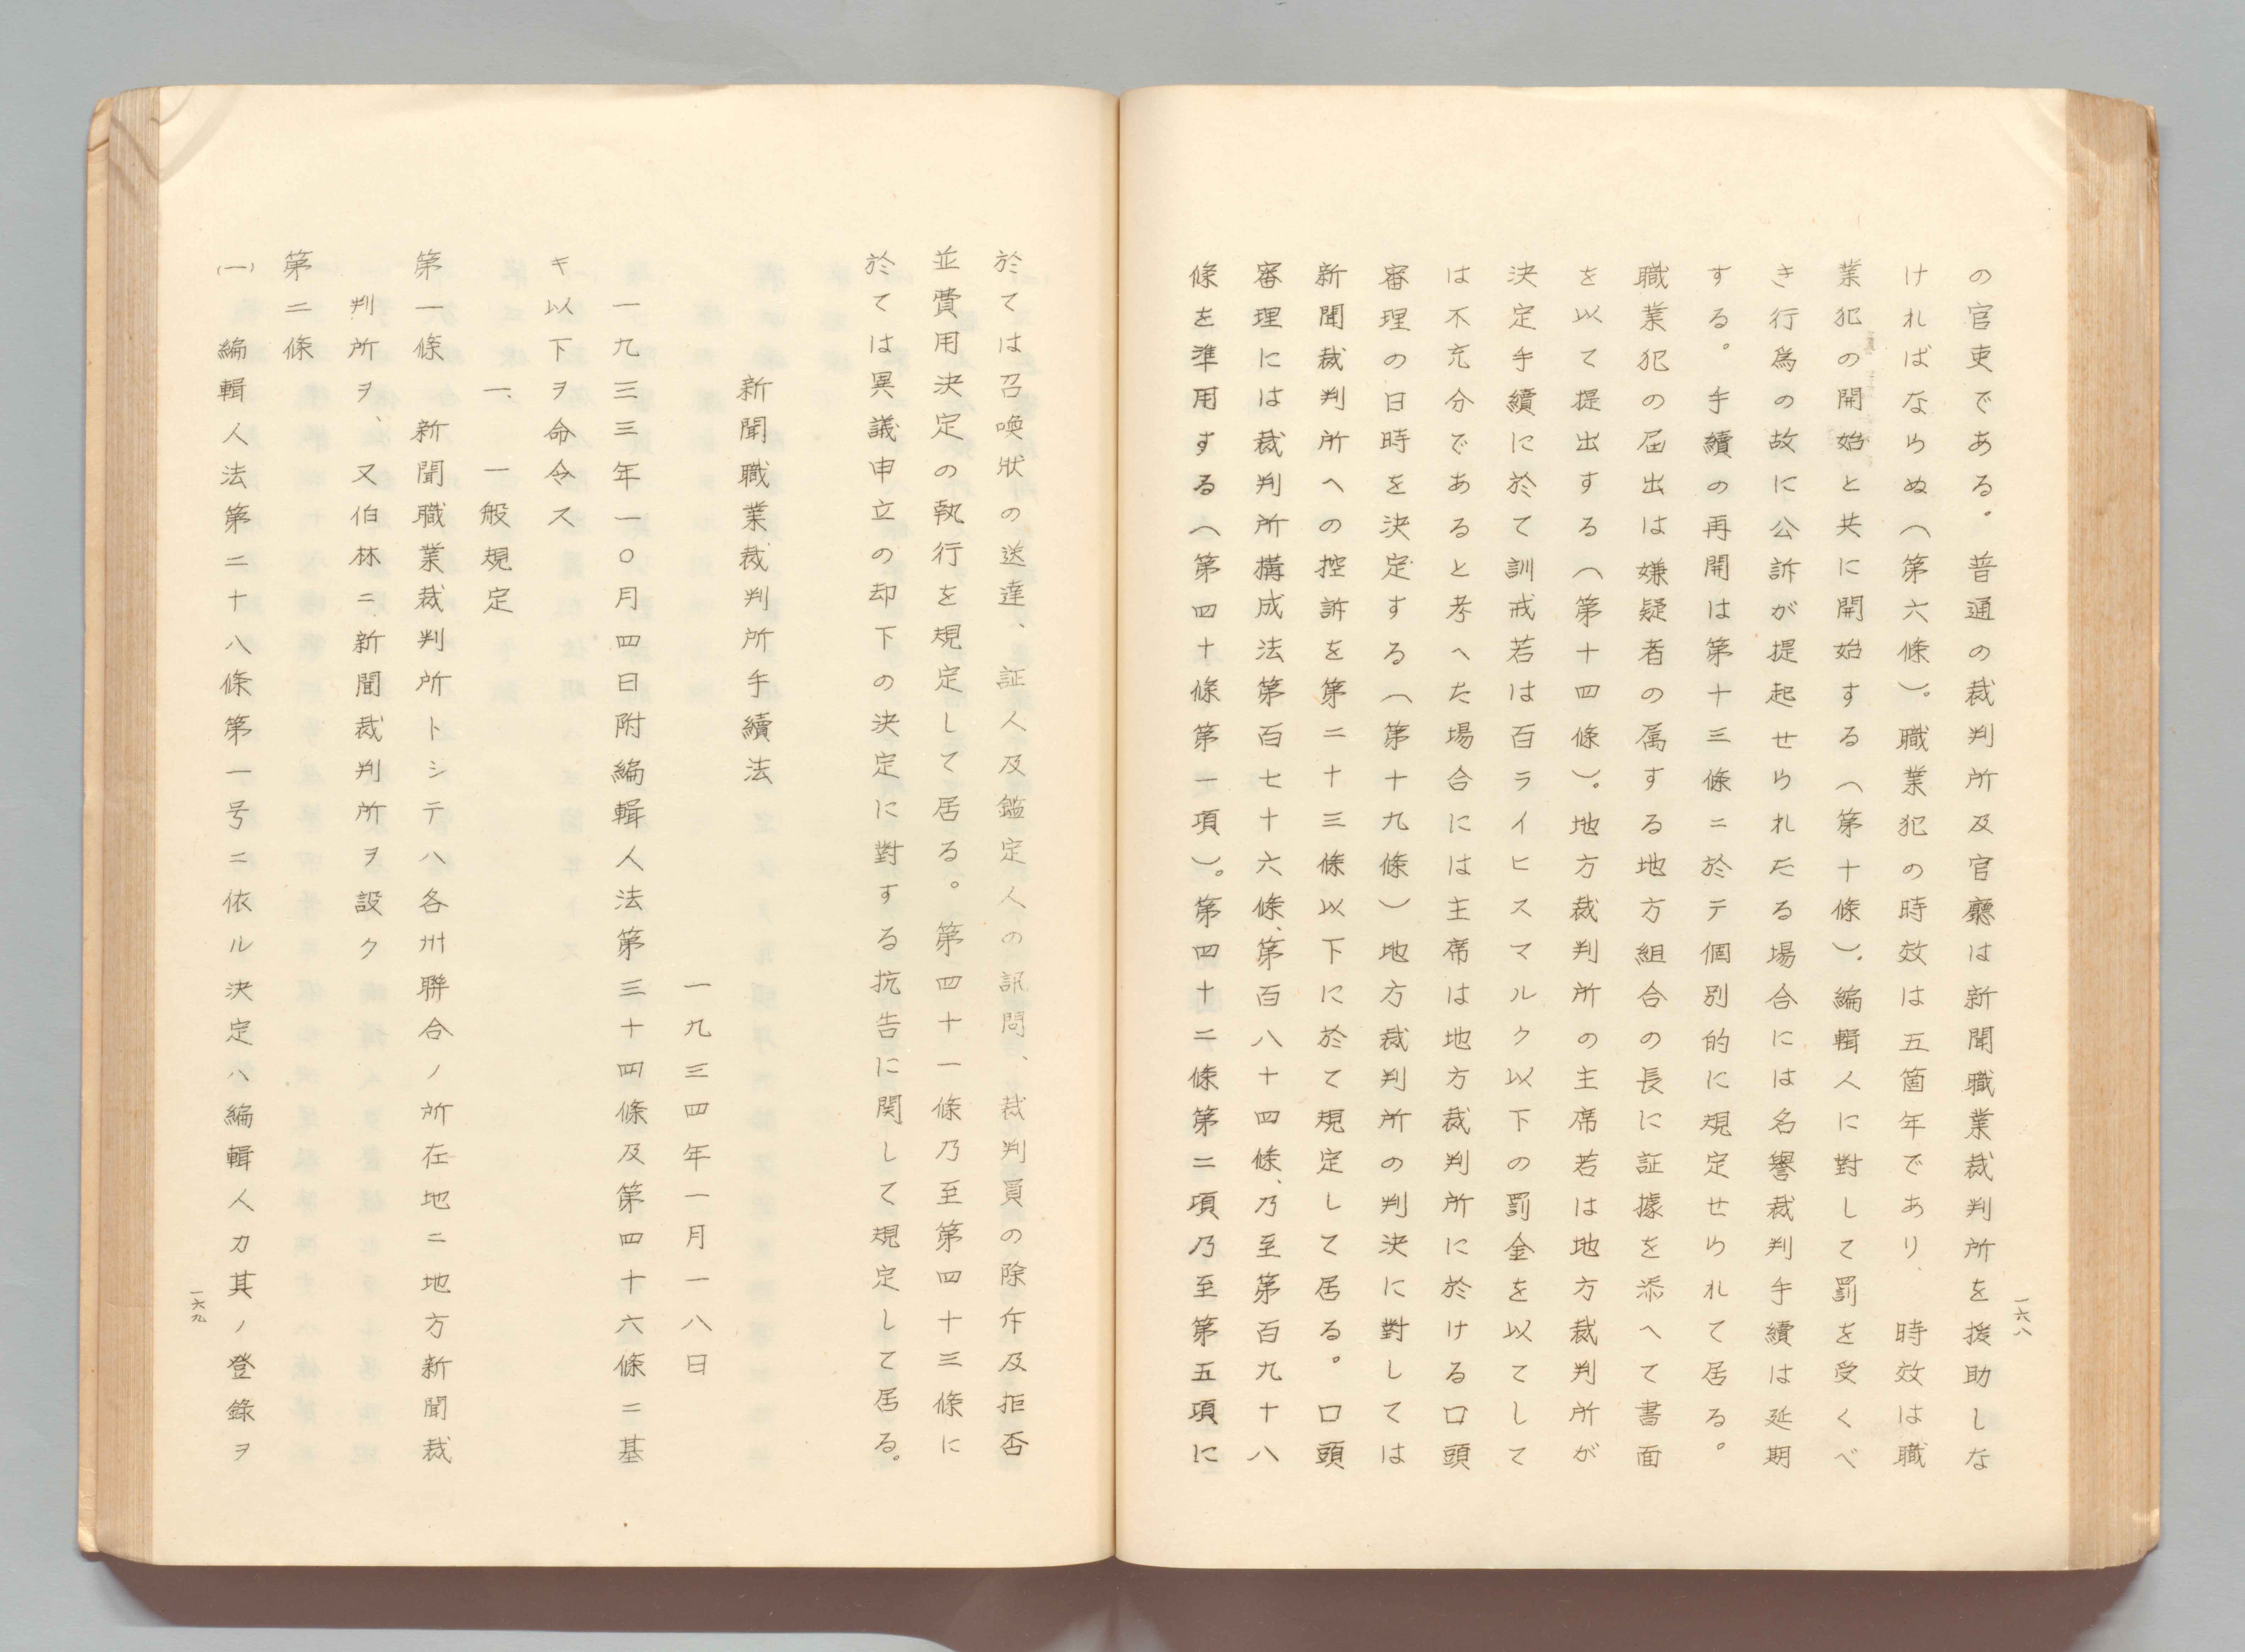 の官吏である。普通の裁判所及官廳は新聞職業裁判所を援助しな
ければならぬ（第六條）。職業犯の時效は五箇年であり、時效は職
業犯の開始と共に開始する（第十條）。編輯人に對して罰を受くべ
き行爲の故に公訴が提起せられたる場合には名譽裁判手續は延期
する。手續の再開は第十三條ニ於テ個別的に規定せられて居る。
職業犯の届出は嫌疑者の属する地方組合の長に証據を添へて書面
を以て提出する（第十四條）。地方裁判所の主席若は地方裁判所が
決定手續に於て訓戒若は百ライヒスマルク以下の罰金を以てして
は不充分であると考へた場合には主席は地方裁判所に於ける口頭
審理の日時を決定する（第十九條）地方裁判所の判決に對しては
新聞裁判所への控訴を第二十三條以下に於て規定して居る。口頭
審理には裁判所構成法第百七十六條、第百八十四條、乃至第百九十八
條を準用する（第四十條第一項）。第四十二條第二項乃至第五項に
一六八
於ては召喚狀の送達、証人及鑑定人の訊問、裁判員の除斥及拒否
並費用決定の執行を規定して居る。第四十一條乃至第四十三條に
於ては異議申立の却下の決定に對する抗告に関して規定して居る。
新聞職業裁判所手續法
一九三四年一月一八日
一九三三年一〇月四日附編輯人法第三十四條及第四十六條ニ基
キ以下ヲ命令ス
一、一般規定
第一條　新聞職業裁判所トシテハ各州聯合ノ所在地ニ地方新聞裁
判所ヲ、又伯林ニ新聞裁判所ヲ設ク
第二條
（一）　編輯人法第二十八條第一号ニ依ル決定ハ編輯人カ其ノ登錄ヲ
一六九